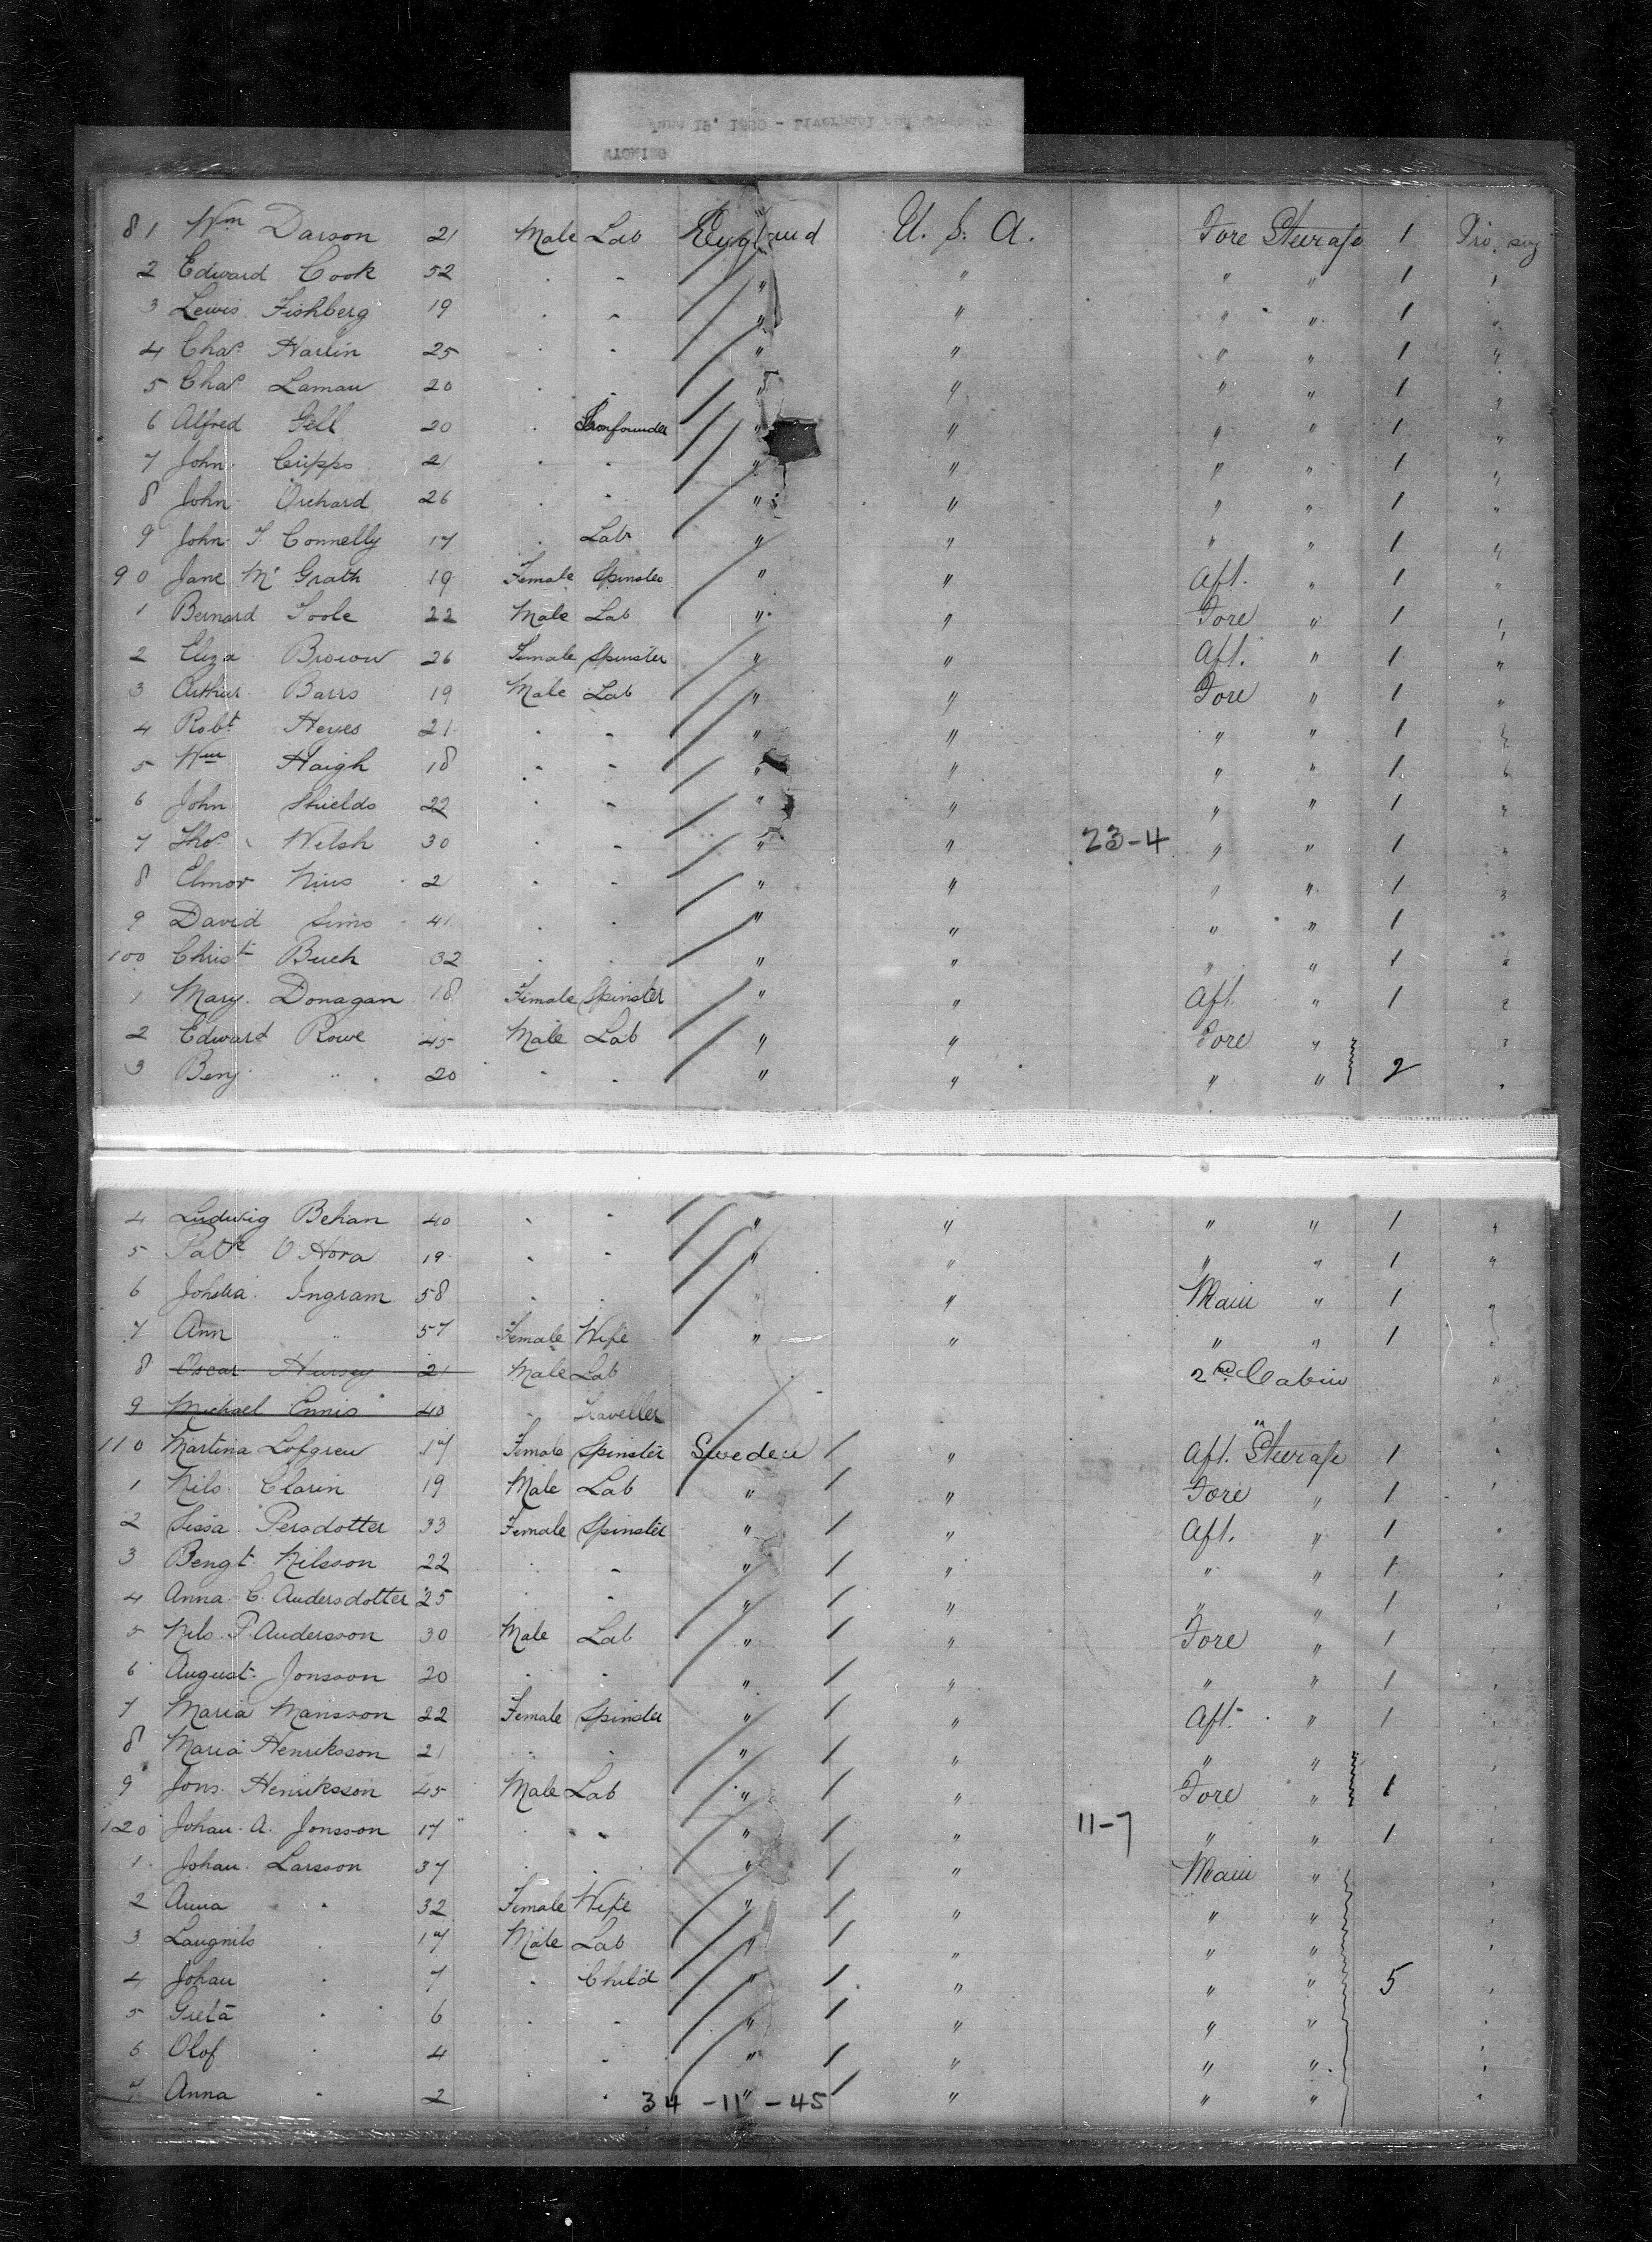 81 Wm Darson 21 Male Lab England U. S. A. Fore Steerage 1
2 Edward Cook 52 " " " " " " 1 "
3 Lewis Fishberg 19 " " " " " " 1 "
4 Chas Harlin 25 " " " " " " 1 "
5 Chas Laman 20 " " " " " 1 "
6 Alfred Gill 20 " Ironfounder " " " " 1 "
7 John Cripps 21 " " " " " " 1 "
8 John Orchard 26 " " " " " " 1 "
9 John T Connelly 17 " Labr " " " " 1 "
90 Jane Mc Grath 19 Female Spinster " " Aft. " 1 "
1 Bernard Toole 22 Male Lab " " Fore " 1 "
2 Eliza Brown 26 Female Spinster " " Aft. " 1 "
3 Arthur Barrs 19 Male Lab " " Fore " 1 "
4 Robt Heyes 21 " " " " " " 1 "
5 Wm Haigh 18 " " " " " " 1 "
6 John Shields 22 " " " " " " 1 "
7 Thos Welsh 30 " " " " 23-4 " " 1 "
8 Elmor 2 " " " " " " 1 "
9 David Sims 41 " " " " " " 1 "
100 Christ Buch 32 " " " " " " 1 "
1 Mary Donagan 18 Female Spinster " " Aft. " 1 "
2 Edward Rowe 45 Male Lab " " Fore " "
3 Benj " 20 " " " " " " 2 "
4 Ludwig Behan 40 " " " " " " 1 "
5 Patk O Hora 19 " " " " " " 1 "
6 Ingram 58 " " " " Main " 1 "
7 Ann " 57 Female Wife " " " " 1 "
8 Oscar Hursey 21 Male Lab 2nd Cabin "
9 Michael Ennis 40 " Traveller " "
110 Martina Lofgren 17 Female Spinster Sweden / " Aft. Steerage 1 "
1 Nils Clarin 19 Male Lab " / " Fore " 1 "
2 Sissa Persdotter 33 Female Spinster " / " Aft. " 1 "
3 Bengt Nilsson 22 " " " / " " " 1 "
4 Anna C. Andersdotter 25 " " " / " " " 1 "
5 Nils P Andersson 30 Male Lab " / " Fore " 1 "
6 August Jonsson 20 " " " / " " " 1 "
7 Maria Mansson 22 Female Spinster " / " Aft. " 1 "
8 Maria Henriksson 21 " " " / " " "
9 Jons Henriksson 45 Male Lab " / " Fore " 1 "
120 Johan A. Jonsson 17 " " " / " 11-7 " " 1 "
1 Johan Larsson 37 " " " / " Main " "
2 Anna " 32 Female Wife " / " " "
3 Laugnils " 17 Male Lab " / " " " "
4 Johan " 7 " Child " / " " " 5 "
5 Greta " 6 " " " / " " " "
6 Olof " 4 " " " / " " " "
7 Anna " 2 " " / " " " "
34 - 11 - 45